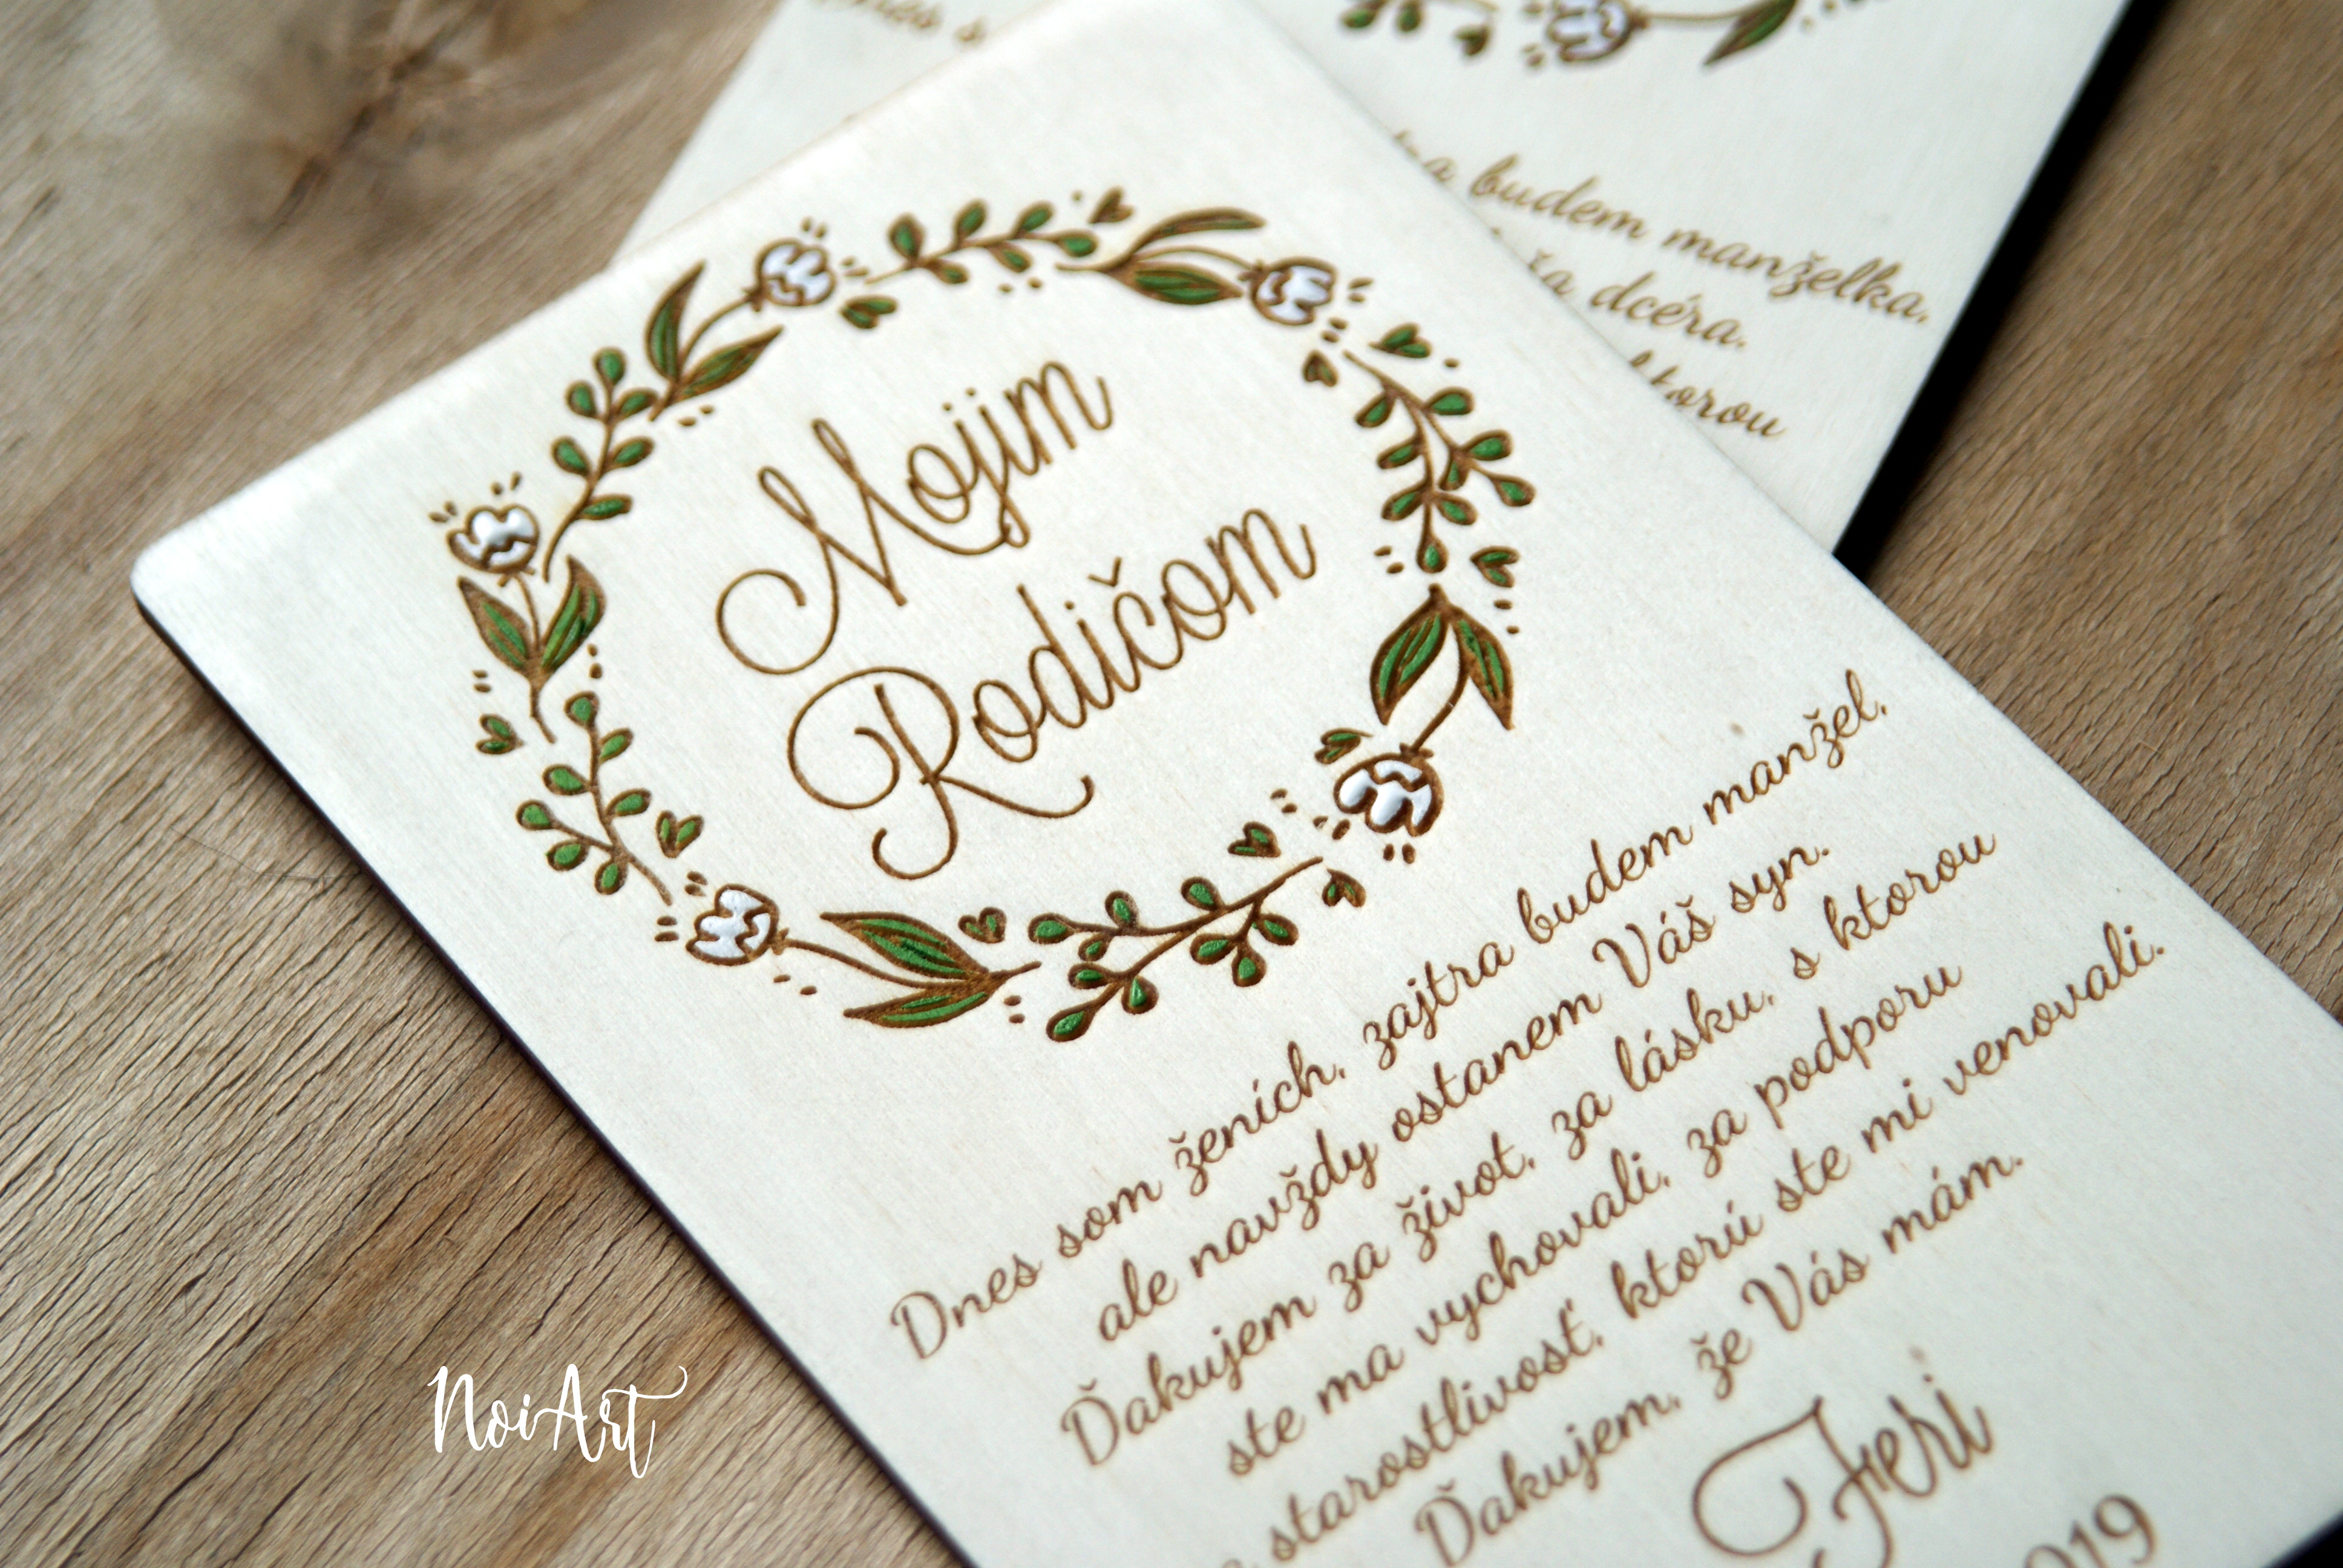 Mojim
Rodičom
Dnes som ženích, zajtra budem manžel,
ale navždy ostanem Váš syn.
Ďakujem za život, za lásku, s ktorou
ste ma vychovali, za podporu
starostlivosť, ktorú ste mi venovali.
Ďakujem, že Vás mám.
Feri
budem manželka,
dcéra.
ktorou
NoiArt